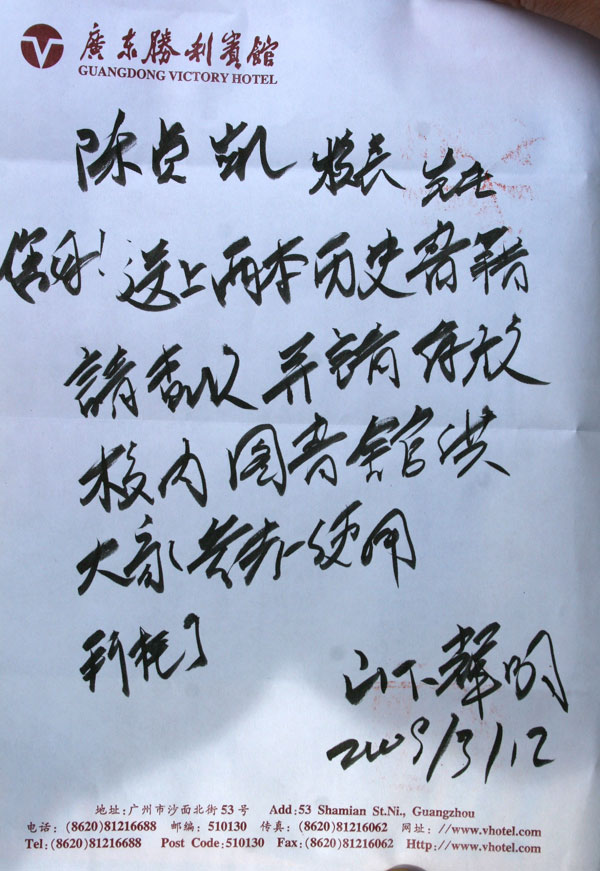 廣东勝利賓館
GUANGDONG VICTORY HOTEL
陈贞凯 校长 先生
您好！送上两本历史書籍
請查收 并請存放
校内图書館供
大家参考使用
山下輝明
2009/3/12
地址:广州市沙面北街53号 Add:53 Shamian St.Ni., Guangzhou
电话: (8620)81216688 邮编: 510130 传真: (8620)81216062 网址: //www.vhotel.com
Tel:(8620)81216688 Post Code:510130 Fax:(8620)81216062 Http://www.vhotel.com